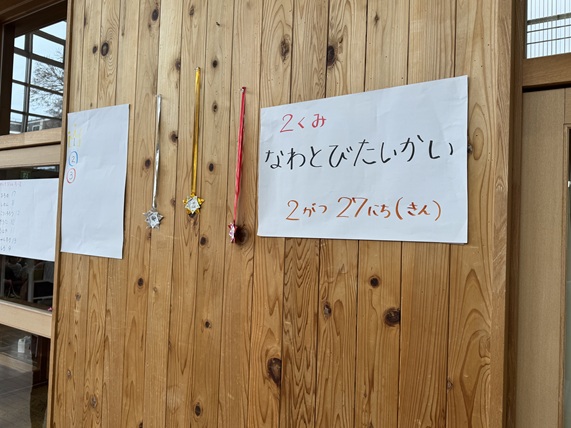 2くみ
なわとびたいかい
2がつ 27にち(きん)
②
③